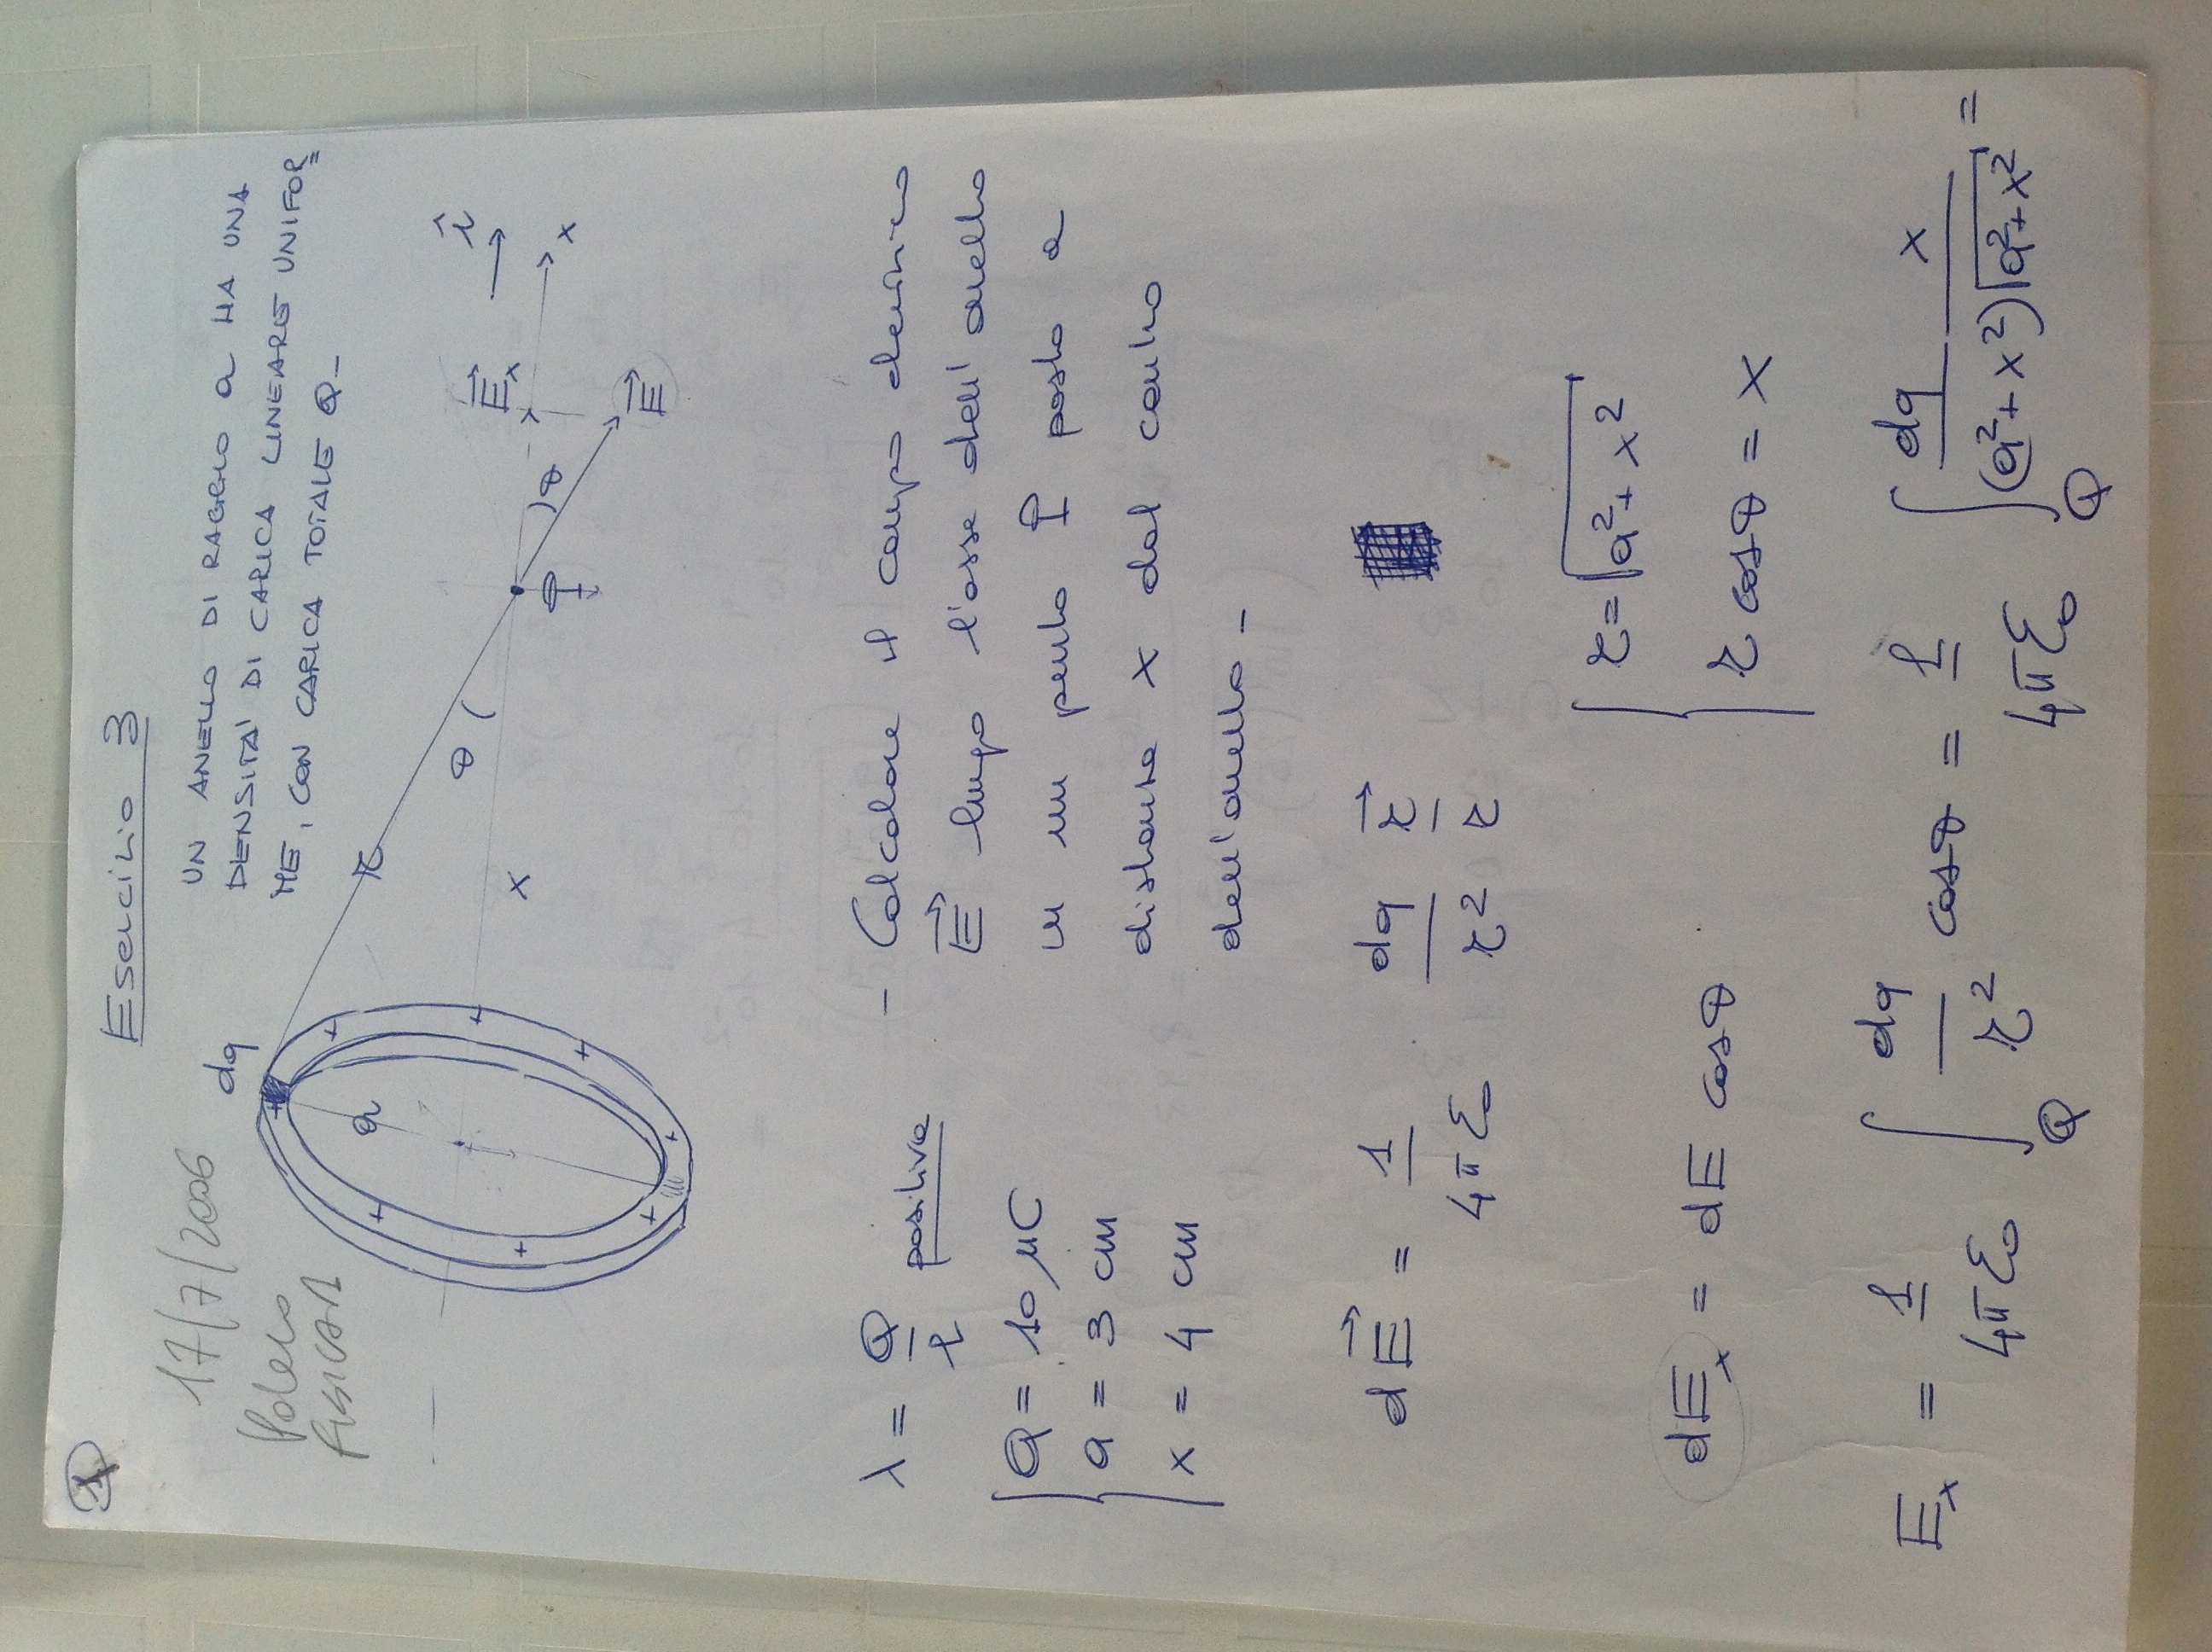 1
Esercizio 3
17/7/2006
FISICA 1
UN ANELLO DI RAGGIO a HA UNA
DENSITA' DI CARICA LINEARE UNIFOR=
ME, CON CARICA TOTALE Q-
dq
a
r
θ
x
P
θ
E⃗x
î
x
E⃗
+ + + + + + + + +
λ = Q/l positiva
Q = 10 μC
a = 3 cm
x = 4 cm
- Calcolare il campo elettrico
E⃗ lungo l'asse dell'anello
in un punto P posto a
distanza x dal centro
dell'anello -
dE⃗ = 1/4πε₀ dq/r² r⃗/r
r = √(a² + x²)
dEx = dE cosθ
r cosθ = x
Ex = 1/4πε₀ ∫Q dq/r² cosθ = 1/4πε₀ ∫Q dq x/(a²+x²)√(a²+x²) =